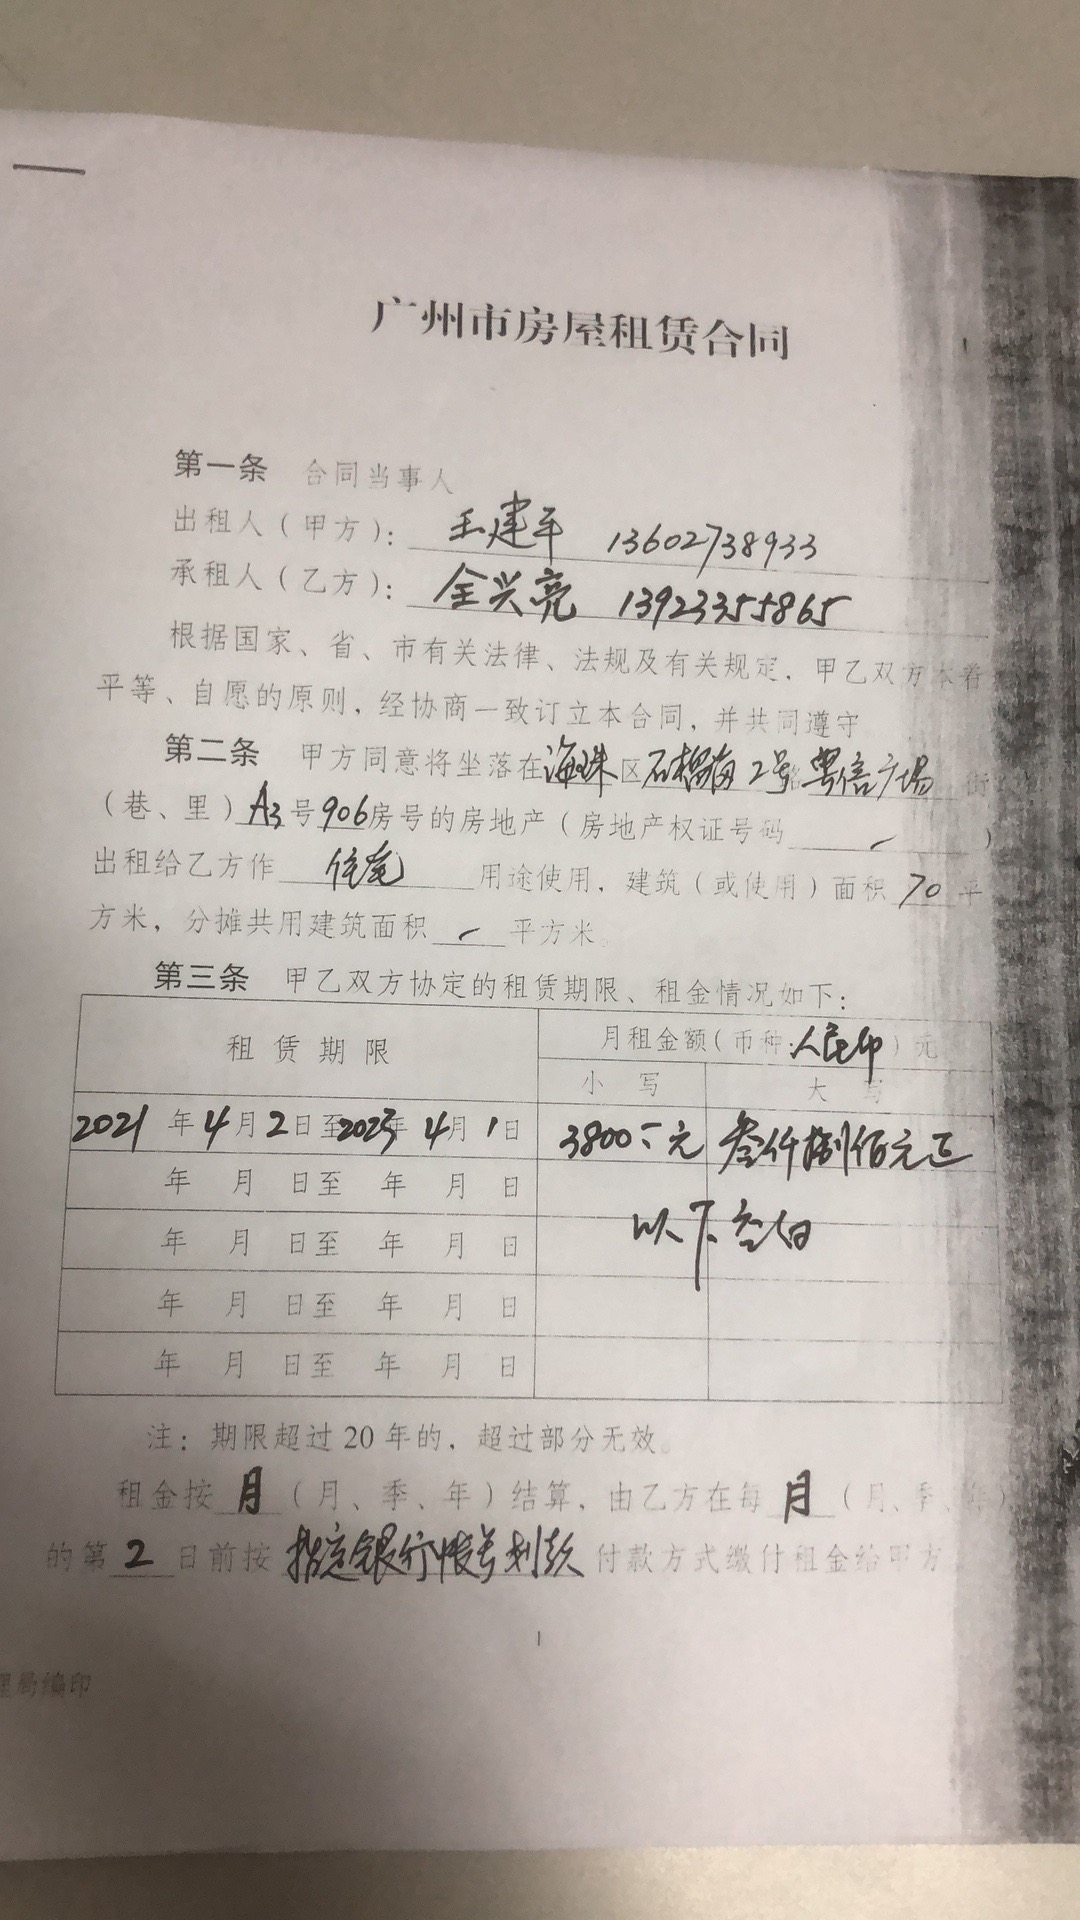 广州市房屋租赁合同
第一条 合同当事人
出租人(甲方): 王建平 13602738933
承租人(乙方): 全兴亮 13923355865
根据国家、省、市有关法律、法规及有关规定,甲乙双方本着
平等、自愿的原则,经协商一致订立本合同,并共同遵守
第二条 甲方同意将坐落在海珠区石榴岗2号粤信广场 街
(巷、里)A3号906房号的房地产(房地产权证号码 )
出租给乙方作 住宅 用途使用,建筑(或使用)面积70平
方米,分摊共用建筑面积 平方米。
第三条 甲乙双方协定的租赁期限、租金情况如下:
租赁期限 月租金额(币种:人民币)元
小写 大写
2021年4月2日至2023年4月1日 3800元 叁仟捌佰元正
年 月 日至 年 月 日
以下空白
年 月 日至 年 月 日
年 月 日至 年 月 日
年 月 日至 年 月 日
注:期限超过20年的,超过部分无效。
租金按月(月、季、年)结算,由乙方在每月(月、季、年)
的第2日前按指定银行帐号划款付款方式缴付租金给甲方
1
理局编印